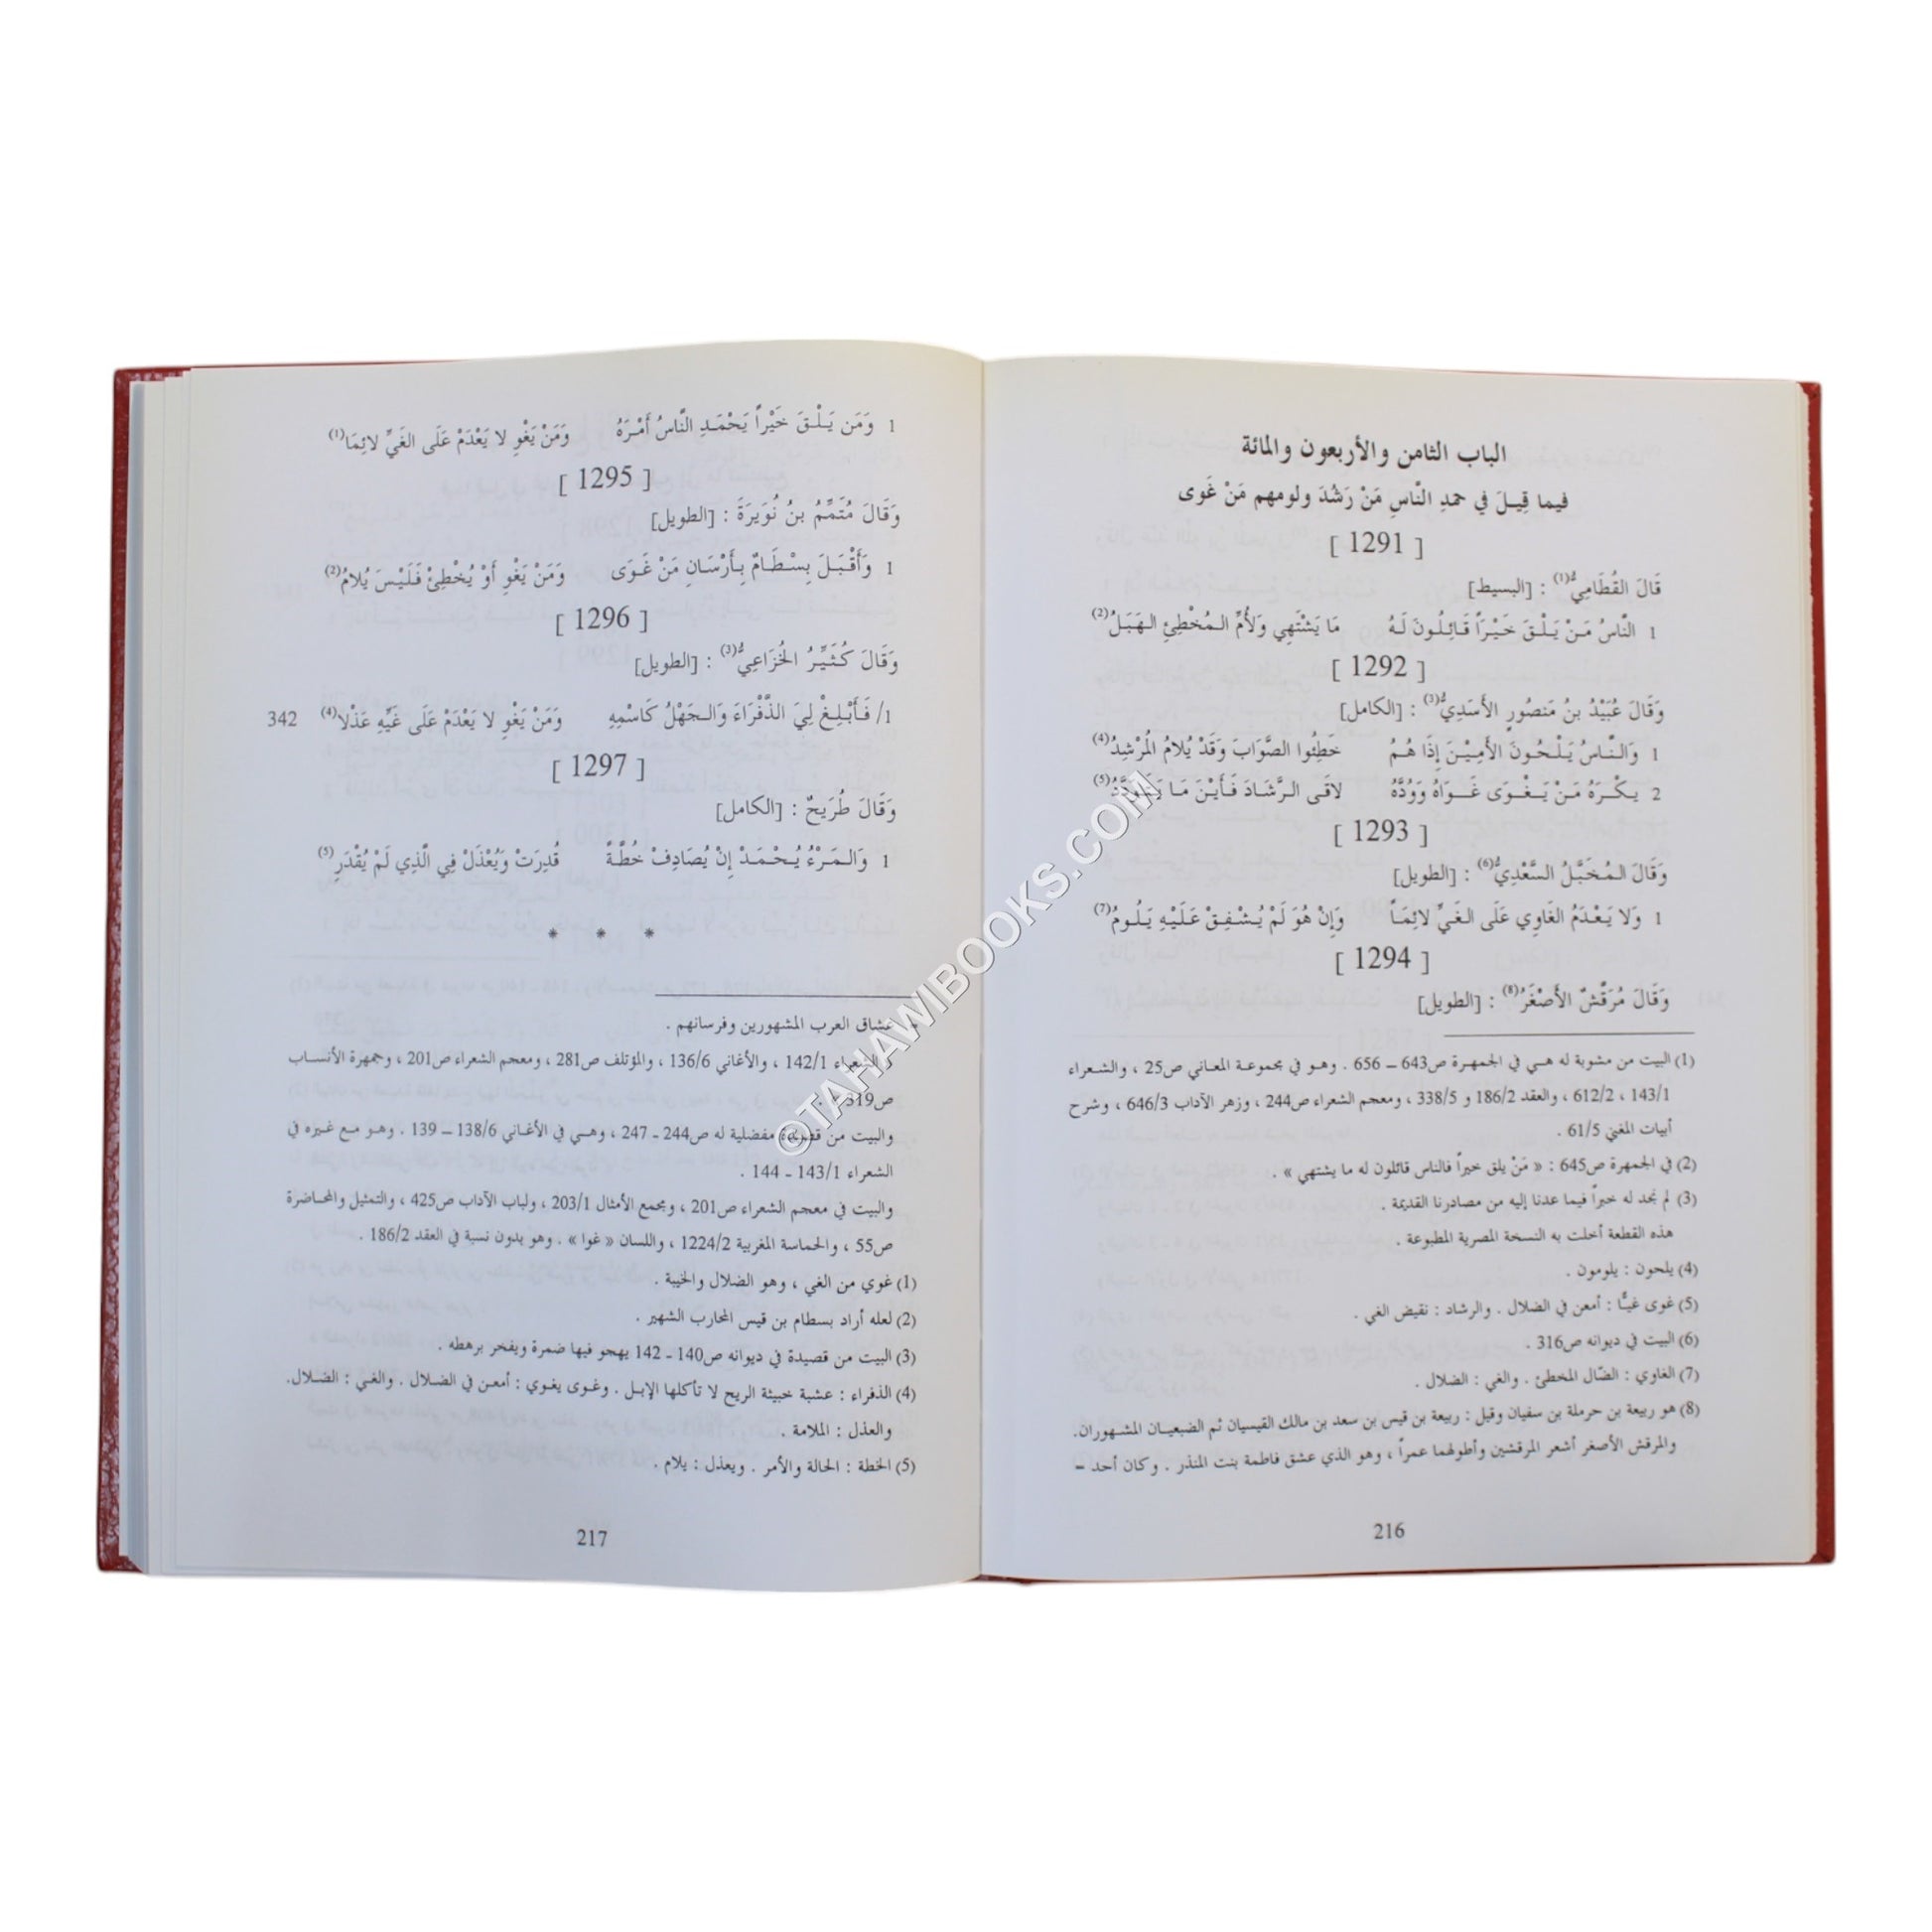 الباب الثامن والأربعون والمائة
فيما قِيلَ في حمدِ النَّاسِ مَنْ رَشُدَ ولومهم مَنْ غَوى
[ 1291 ]
قَالَ القُطَامِيُّ(1) : [البسيط]
1 النَّاسُ مَـنْ يَـلْـقَ خَـيْـرَاً قَـائِـلُـونَ لَـهُ مَا يَشْتَهِي وَلأُمِّ الـمُخْطِئِ الـهَبَلُ(2)
[ 1292 ]
وَقَالَ عُبَيْدُ بنُ مَنصُورٍ الأَسَدِيُّ(3) : [الكامل]
1 وَالنَّـاسُ يَـلْـحُـونَ الأَمِيْـنَ إِذَا هُـمُ خَطِئُوا الصَّوَابَ وَقَدْ يُلامُ المُرْشِدُ(4)
2 يـكْـرَهُ مَـنْ يَـغْـوَى غَـوَاهُ وَوُدُّهُ لاقَـى الـرَّشَـادَ فَـأَيْـنَ مَـا يَـتَـوَدَّدُ(5)
[ 1293 ]
وَقَالَ الـمُخَبَّـلُ السَّعْدِيُّ(6) : [الطويل]
1 وَلا يَـعْـدَمُ الغَاوِي عَلَى الـغَيِّ لائِمَـاً وَإِنْ هُوَ لَمْ يُـشْـفِـقْ عَـلَـيْـهِ يَـلُـومُ(7)
[ 1294 ]
وَقَالَ مُرَقِّشٌ الأَصْغَرُ(8) : [الطويل]
(1) البيت من مشوبة له هـي في الجمهـرة ص643 – 656 . وهـو في مجموعـة المعـاني ص25 ، والشـعراء
143/1 ، 612/2 ، والعقد 186/2 و 338/5 ، ومعجم الشعراء ص244 ، وزهر الآداب 646/3 ، وشرح
أبيات المغني 61/5 .
(2) في الجمهرة ص645 : « مَنْ يلق خيراً فالناس قائلون له ما يشتهي » .
(3) لم نجد له خبراً فيما عدنا إليه من مصادرنا القديمة .
هذه القطعة أخلت به النسخة المصرية المطبوعة .
(4) يلحون : يلومون .
(5) غوى غيـًّا : أمعن في الضلال . والرشاد : نقيض الغي .
(6) البيت في ديوانه ص316 .
(7) الغاوي : الضّال المخطئ . والغي : الضلال .
(8) هو ربيعة بن حرملة بن سفيان وقيل : ربيعة بن قيس بن سعد بن مالك القيسيان ثم الضبعيـان المشـهوران.
والمرقش الأصغر أشعر المرقشين وأطولهما عمراً ، وهو الذي عشق فاطمة بنت المنذر . وكان أحد –
216
1 وَمَن يَـلْـقَ خَيْـراً يَـحْمَـدِ النَّـاسُ أَمْـرَهُ وَمَنْ يَغْوِ لا يَعْدَمْ عَلَى الغَيِّ لائِمَا(1)
[ 1295 ]
وَقَالَ مُتَمِّمُ بنُ نُوَيرَةَ : [الطويل]
1 وَأَقْـبَـلَ بِـسْـطَـامٌ بِـأَرْسَـانِ مَنْ غَـوَى وَمَنْ يَغْوِ أَوْ يُخْطِئْ فَلَيْسَ يُلامُ(2)
[ 1296 ]
وَقَالَ كُـثَـيِّـرُ الخُزَاعِيُّ(3) : [الطويل]
1/ فَـأَبْـلِـغْ لِيَ الذَّفْرَاءَ وَالـجَهْلُ كَاسْمِهِ وَمَنْ يَغْوِ لا يَعْدَمْ عَلَى غَيِّهِ عَذْلا(4) 342
[ 1297 ]
وَقَالَ طُرَيحٌ : [الكامل]
1 وَالـمَـرْءُ يُـحْـمَـدْ إِنْ يُصَادِفْ خُطَّـةً قُدِرَتْ وَيُعْذَلْ فِي الَّذِي لَمْ يُقْدَرِ(5)
* * *
= عشاق العرب المشهورين وفرسانهم .
« الشعراء 142/1 ، والأغاني 136/6 ، والمؤتلف ص281 ، ومعجم الشعراء ص201 ، وجمهرة الأنسـاب
ص319 » .
والبيت من قصيدة مفضلية له ص244 - 247 ، وهـي في الأغاني 138/6 – 139 . وهـو مـع غيره في
الشعراء 143/1 - 144 .
والبيت في معجم الشعراء ص201 ، ومجمع الأمثال 203/1 ، ولباب الآداب ص425 ، والتمثيل والمحـاضرة
ص55 ، والحماسة المغربية 1224/2 ، واللسان « غوا » . وهو بدون نسبة في العقد 186/2 .
(1) غوي من الغي ، وهو الضلال والخيبة .
(2) لعله أراد بسطام بن قيس المحارب الشهير .
(3) البيت من قصيدة في ديوانه ص140 - 142 يهجو فيها ضمرة ويفخر برهطه .
(4) الذفراء : عشبة خبيثة الريح لا تأكلها الإبـل . وغـوى يغوي : أمعـن في الضـلال . والغي : الضـلال.
والعذل : الملامة .
(5) الخطة : الحالة والأمر . ويعذل : يلام .
217
©TAHAWIBOOKS.COM